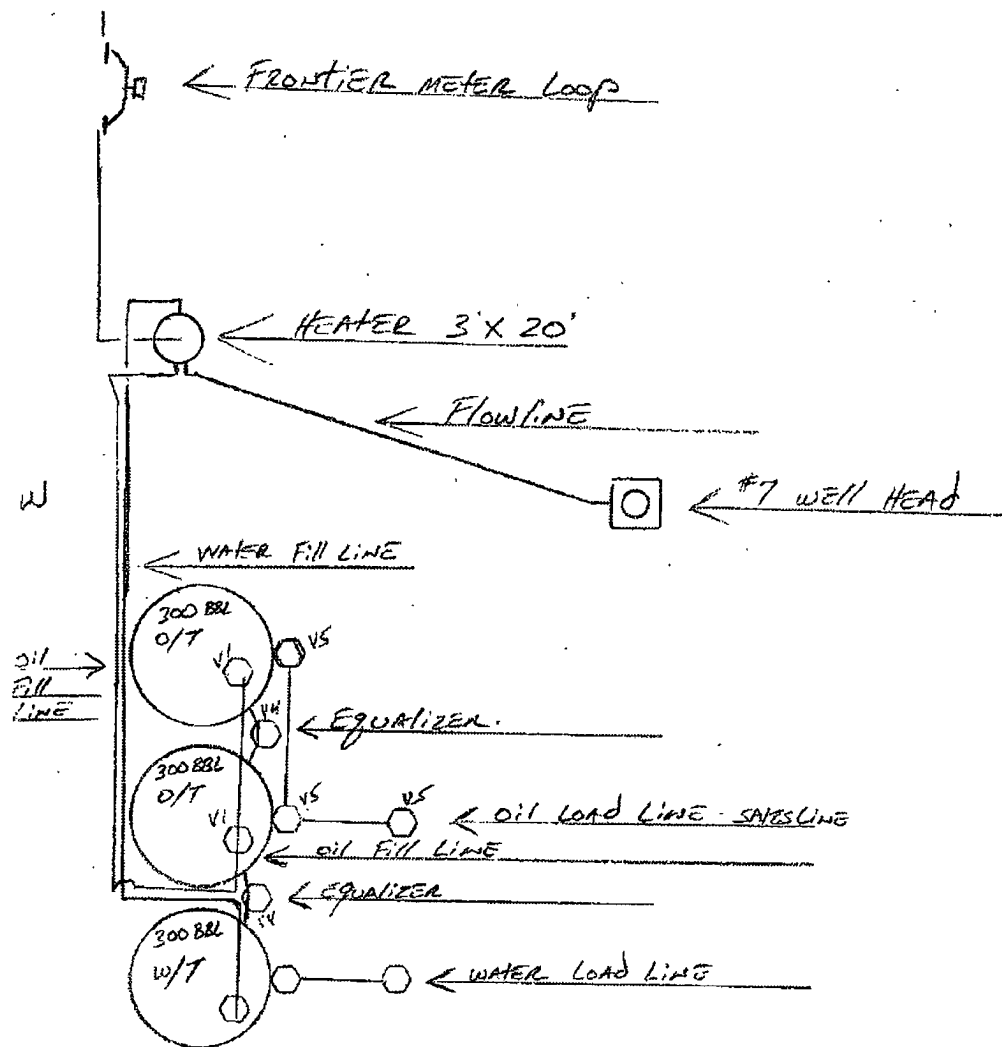 FRONTIER METER LOOP
HEATER 3' X 20'
FLOWLINE
#7 WELL HEAD
W
WATER FILL LINE
300 BBL
O/T
V1
V5
OIL
FILL
LINE
V4
EQUALIZER.
300 BBL
O/T
V1
V5
V5
OIL LOAD LINE - SALES LINE
OIL FILL LINE
EQUALIZER
V4
300 BBL
W/T
WATER LOAD LINE